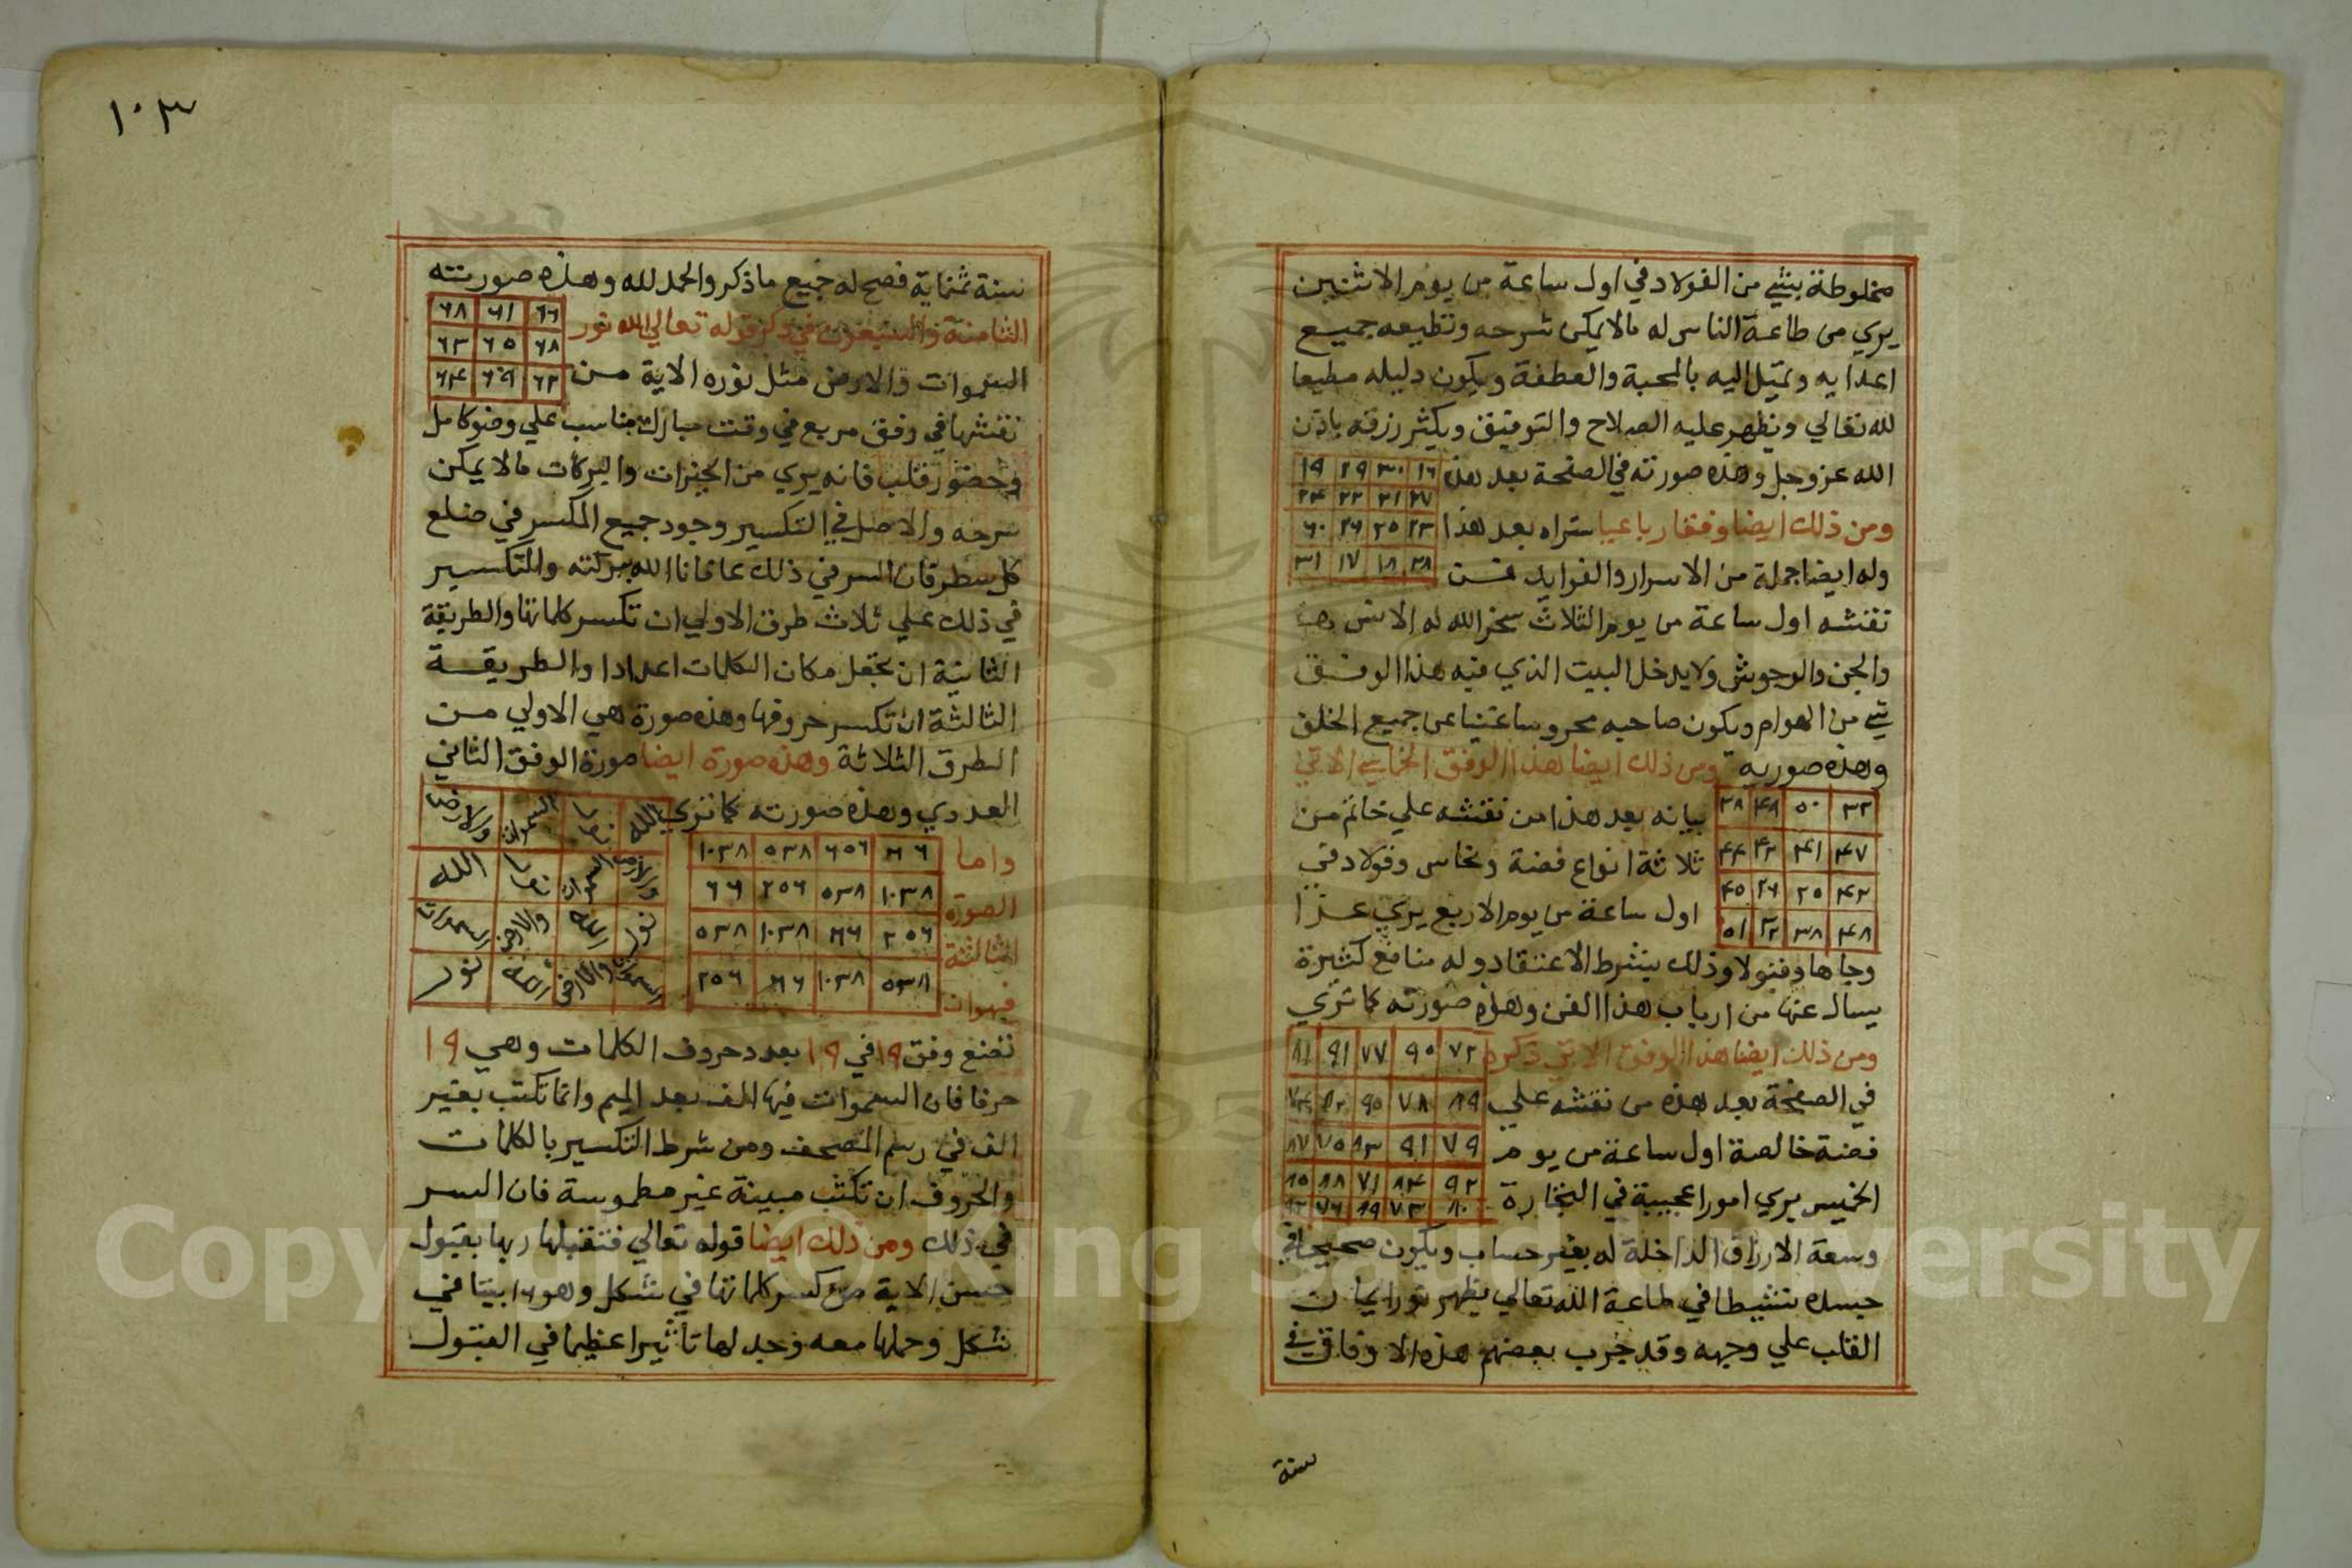 مخلوطة بشي من الفولاد في اول ساعة من يوم الاثنين
يري من طاعة الناس له مالا يمكن شرحه وتطيعه جميع
اعدايه وتميل اليه بالمحبة والعطفة ويكون دليله مطيعا
لله تعالي ويظهر عليه الصلاح والتوفيق ويكثر رزقه باذن
الله عز وجل وهذه صورته في الصفحة بعد هذه
١٦ ٣٠ ٢٩ ١٩
٢٧ ٢١ ٢٢ ٢٤
ومن ذلك ايضا وفقا رباعيا ستراه بعد هذا
٢٣ ٢٥ ٢٦ ٦٠
وله ايضا جملة من الاسرار والفوايد فمن
٢٨ ١٨ ١٧ ٣١
نقشه اول ساعة من يوم الثلاث سخر الله له الانس
والجن والوحوش ولا يدخل البيت الذي فيه هذا الوفق
شي من الهوام ويكون صاحبه محروسا غنيا عن جميع الخلق
وهذه صورته ومن ذلك ايضا هذا الوفق الخماسي الاتي
٣٢ ٥٠ ٤٨ ٣٨
بيانه بعد هذا من نقشه علي خاتم من
٤٧ ٤١ ٤٢ ٤٤
ثلاثة انواع فضة ونحاس وفولاد في
٤٣ ٢٥ ٢٦ ٤٥
اول ساعة من يوم الاربع يري عزا
٤٨ ٣٨ ٣٢ ٥١
وجاها وقبولا وذلك بشرط الاعتقاد وله منافع كثيرة
يسال عنها من ارباب هذا الفن وهذه صورته كما تري
ومن ذلك ايضا هذا الوفق الاتي ذكره
٧٢ ٩٠ ٧٧ ٩١ ٨١
في الصفحة بعد هذه من نقشه علي
٨٩ ٧٨ ٩٥ ٨٢
فضة خالصة اول ساعة من يوم
٧٩ ٩١ ٨٣ ٧٥ ٨٧
الخميس يري امورا عجيبة في التجارة
٩٢ ٨٤ ٧١ ٨٨
٨٠ ٧٣ ٨٩ ٧٦
وسعة الارزاق الداخلة له بغير حساب ويكون صحيحا في
جسده نشيطا في طاعة الله تعالي يظهر نور ايمان
القلب علي وجهه وقد جرب بعضهم هذه الاوفاق في
سنة
١٠٣
سنة ثمنماية فصح له جميع ما ذكر والحمد لله وهذه صورته
٦٦ ٦١ ٦٨
الثامنة والعشرون في ذكر قوله تعالي الله نور
٦٨ ٦٥ ٦٣
السموات والارض مثل نوره الاية من
٦٢ ٦٩ ٦٤
نقشها في وفق مربع في وقت مبارك مناسب علي وضو كامل
وحضور قلب فانه يري من الخيرات والبركات مالا يمكن
شرحه والاصل في التكسير وجود جميع المكسر في ضلع
كل سطر فان السر في ذلك عافانا الله ببركته والتكسير
في ذلك علي ثلاث طرق الاولي ان تكسر كلماتها والطريقة
الثانية ان تجعل مكان الكلمات اعدادا والطريقة
الثالثة ان تكسر حروفها وهذه صورة هي الاولي من
الطرق الثلاثة وهذه صورة ايضا صورة الوفق الثاني
العددي وهذه صورته كما تري
الله نور السموات والارض
والارض السموات نور الله
نور الله والارض السموات
السموات والارض الله نور
واما
٦٦ ٢٥٦ ٥٣٨ ١٠٣٨
الصورة
١٠٣٨ ٥٣٨ ٢٥٦ ٦٦
الثالثة
٢٥٦ ٦٦ ١٠٣٨ ٥٣٨
فهو ان
٥٣٨ ١٠٣٨ ٦٦ ٢٥٦
تضع وفق ١٩ في ١٩ بعدد حروف الكلمات وهي ١٩
حرفا فان السموات فيها الف بعد الميم وانما تكتب بغير
الف في رسم المصحف ومن شرط التكسير بالكلمات
والحروف ان تكتب مبينة غير مطموسة فان السر
في ذلك ومن ذلك ايضا قوله تعالي فتقبلها ربها بقبول
حسن الاية من كسر كلماتها في شكل وهو ١٦ بيتا في
شكل وحملها معه وجد لها تاثيرا عظيما في القبول
Copyright © King Saud University